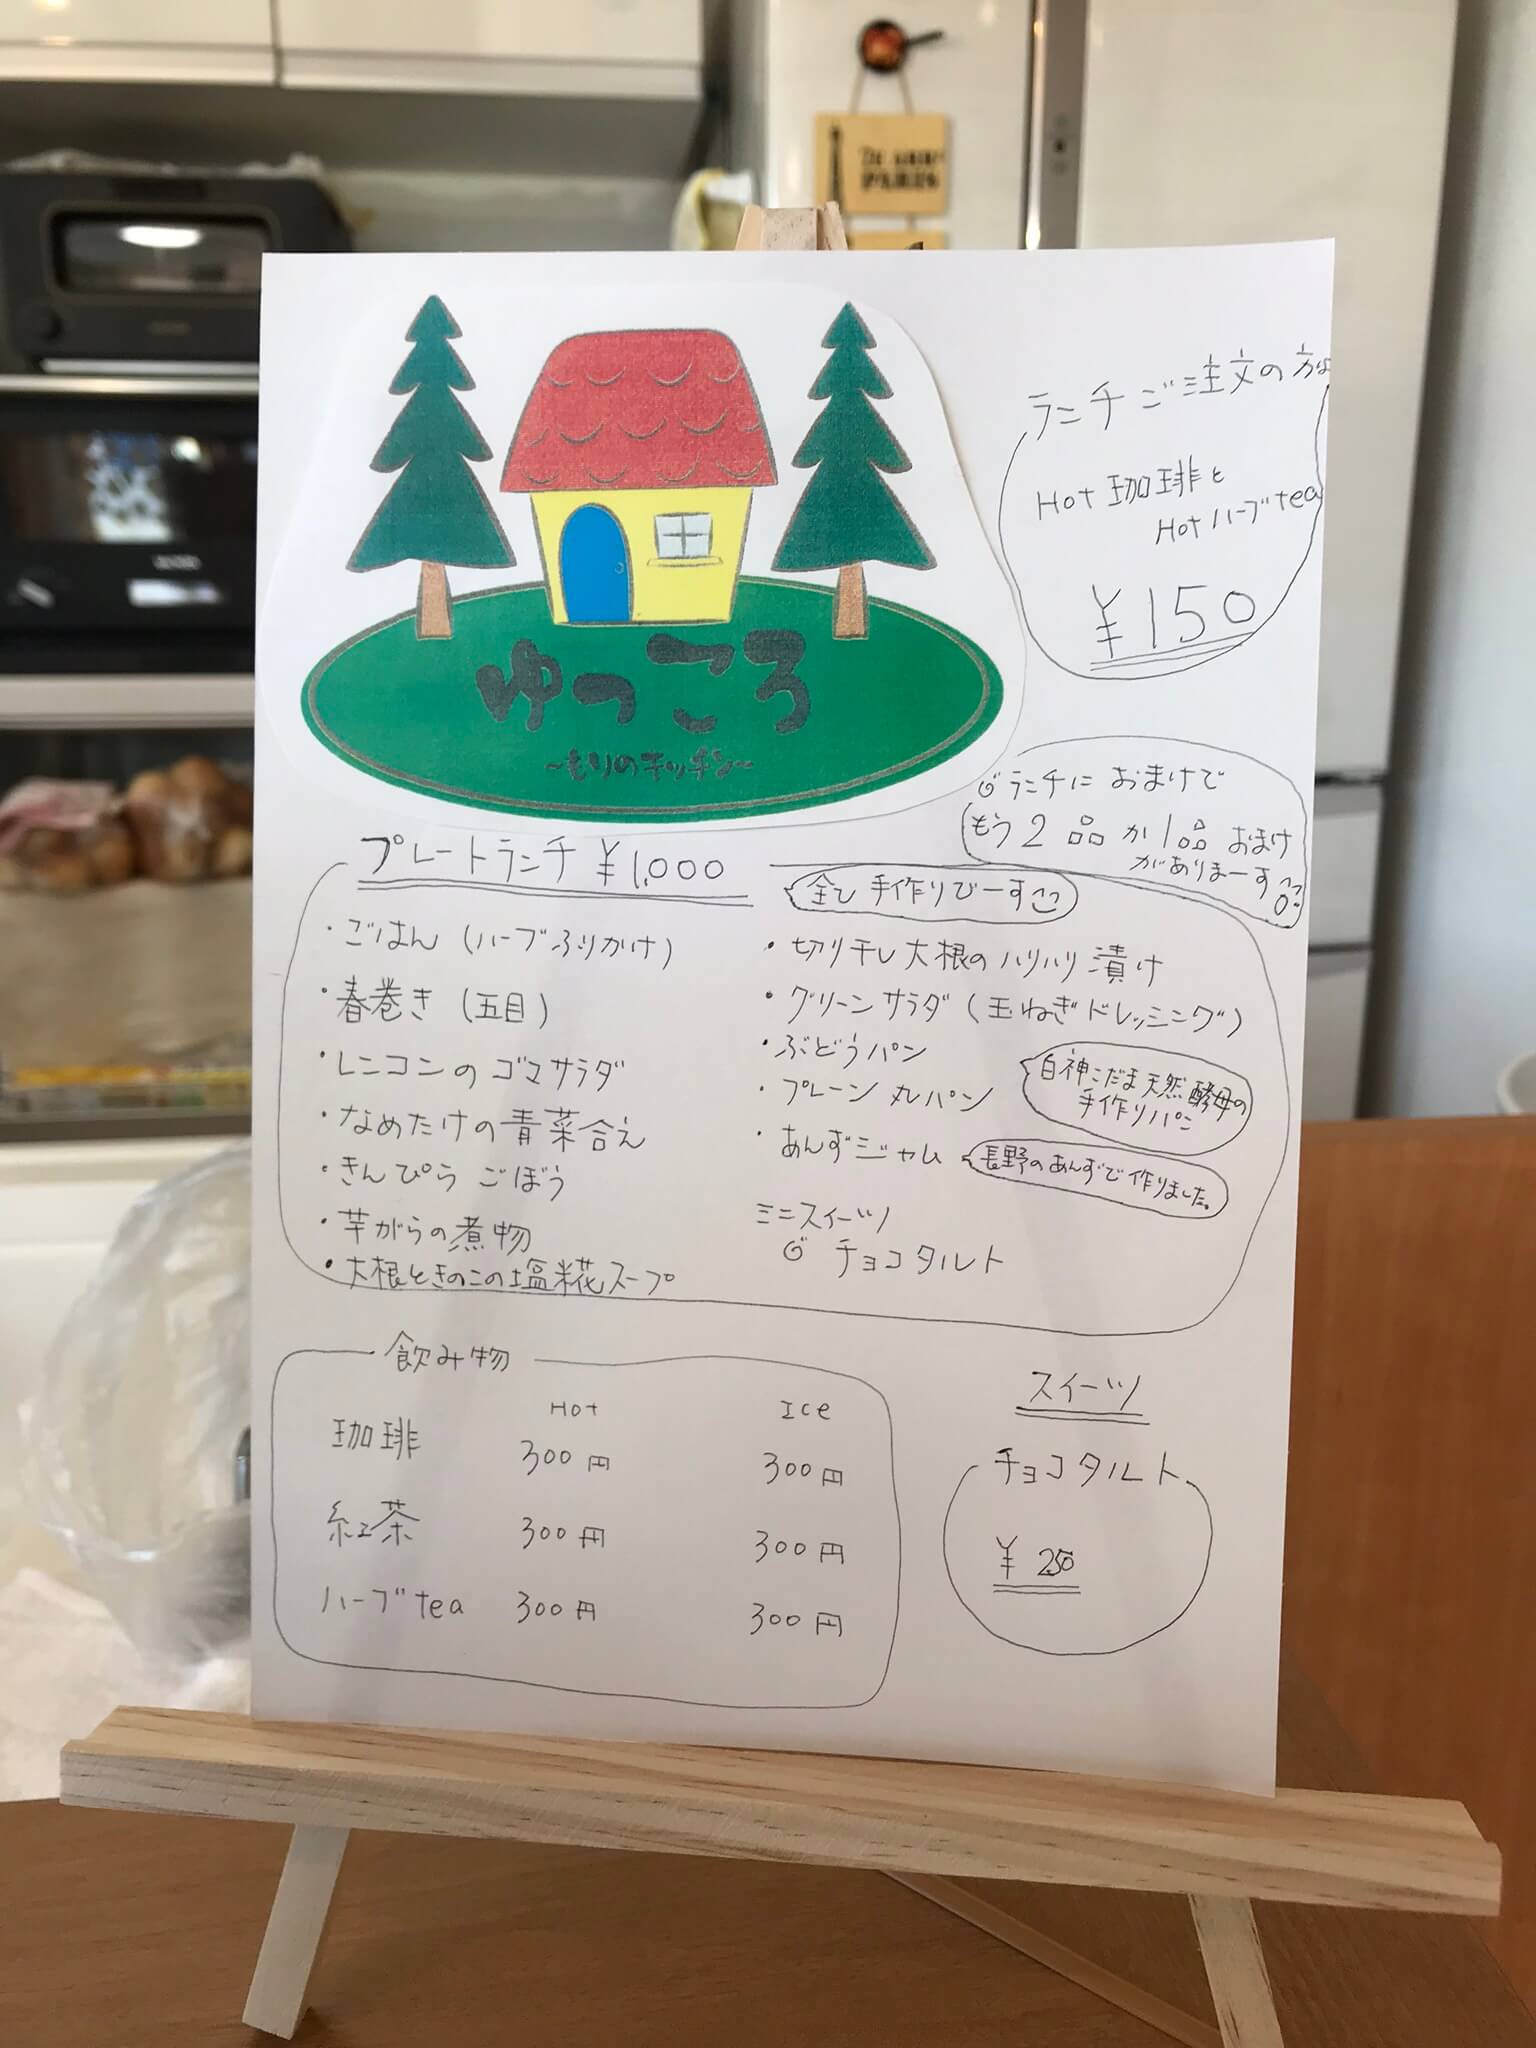 ゆっころ
~もりのキッチン~
ランチご注文の方は
Hot 珈琲と
Hot ハーブtea
¥150
ランチに おまけで
もう2品か1品 おまけ
がありまーす
プレートランチ ¥1,000
全て手作りでーす
・ごはん (ハーブふりかけ)
・春巻き (五目)
・レンコンのゴマサラダ
・なめたけの青菜合え
・きんぴら ごぼう
・芋がらの煮物
・大根ときのこの塩糀スープ
・切り干し大根のハリハリ漬け
・グリーンサラダ (玉ねぎドレッシング)
・ぶどうパン
・プレーン丸パン
白神こだま天然酵母の
手作りパン
・あんずジャム
長野のあんずで作りました。
ミニスイーツ
チョコタルト
飲み物
Hot Ice
珈琲 300円 300円
紅茶 300円 300円
ハーブtea 300円 300円
スイーツ
チョコタルト
¥250
PARIS